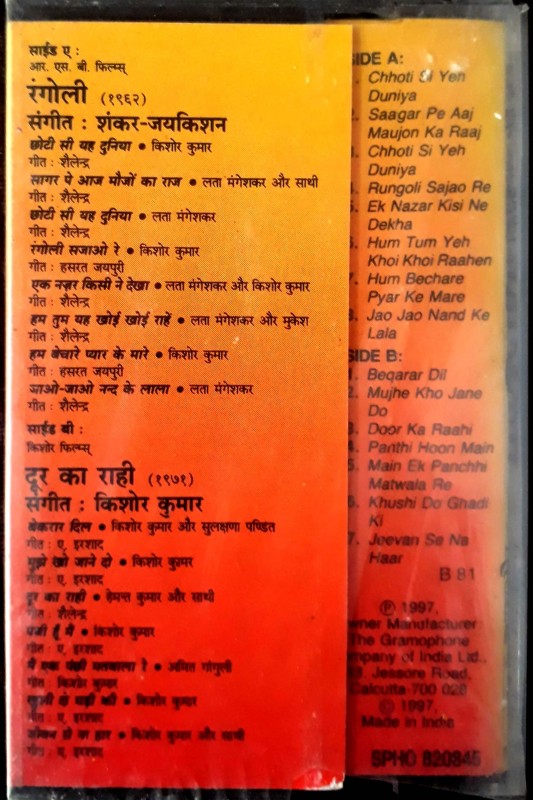 साईड ए :
आर. एस. बी. फिल्म्स्
रंगोली (१९६२)
संगीत : शंकर-जयकिशन
छोटी सी यह दुनिया • किशोर कुमार
गीत : शैलेन्द्र
सागर पे आज मौजों का राज • लता मंगेशकर और साथी
गीत : शैलेन्द्र
छोटी सी यह दुनिया • लता मंगेशकर
गीत : शैलेन्द्र
रंगोली सजाओ रे • किशोर कुमार
गीत : हसरत जयपुरी
एक नज़र किसी ने देखा • लता मंगेशकर और किशोर कुमार
गीत : शैलेन्द्र
हम तुम यह खोई खोई राहें • लता मंगेशकर और मुकेश
गीत : शैलेन्द्र
हम बेचारे प्यार के मारे • किशोर कुमार
गीत : हसरत जयपुरी
जाओ-जाओ नन्द के लाला • लता मंगेशकर
गीत : शैलेन्द्र
साईड बी :
किशोर फिल्म्स्
दूर का राही (१९७१)
संगीत : किशोर कुमार
बेकरार दिल • किशोर कुमार और सुलक्षणा पण्डित
गीत : ए. इरशाद
मुझे खो जाने दो • किशोर कुमार
गीत : ए. इरशाद
दूर का राही • हेमन्त कुमार और साथी
गीत : शैलेन्द्र
पंथी हूँ मैं • किशोर कुमार
गीत : ए. इरशाद
मैं एक पंछी मतवाला रे • अमित गांगुली
गीत : किशोर कुमार
खुशी दो घड़ी की • किशोर कुमार
गीत : ए. इरशाद
जीवन से ना हार • किशोर कुमार और साथी
गीत : ए. इरशाद
SIDE A:
. Chhoti Si Yeh
Duniya
2. Saagar Pe Aaj
Maujon Ka Raaj
3. Chhoti Si Yeh
Duniya
4. Rungoli Sajao Re
5. Ek Nazar Kisi Ne
Dekha
6. Hum Tum Yeh
Khoi Khoi Raahen
7. Hum Bechare
Pyar Ke Mare
8. Jao Jao Nand Ke
Lala
SIDE B:
1. Beqarar Dil
2. Mujhe Kho Jane
Do
3. Door Ka Raahi
4. Panthi Hoon Main
5. Main Ek Panchhi
Matwala Re
6. Khushi Do Ghadi
Ki
7. Jeevan Se Na
Haar
B 81
Ⓟ 1997,
wner Manufacturer
The Gramophone
mpany of India Ltd.,
Jessore Road,
Calcutta-700 028
© 1997,
Made in India
SPHO 820845